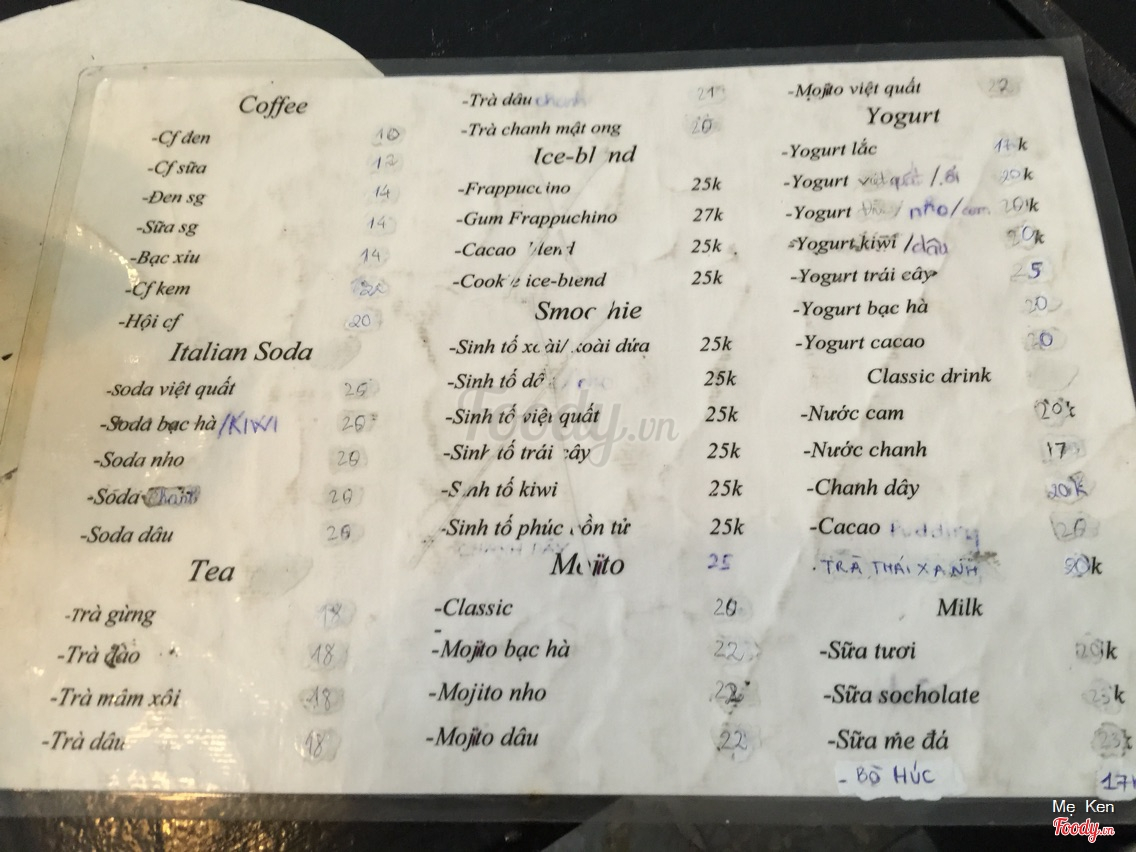 Coffee
-Cf đen 10
-Cf sữa 12
-Đen sg 14
-Sữa sg 14
-Bạc xỉu 14
-Cf kem
-Hội cf 20
Italian Soda
-soda việt quất 20
-Soda bạc hà/KIWI 20
-Soda nho 20
-Soda chanh 20
-Soda dâu 20
Tea
-Trà gừng 18
-Trà đào 18
-Trà mâm xôi 18
-Trà dâu 18
-Trà dâu chanh 21
-Trà chanh mật ong 20
Ice-bl nd
-Frappuccino 25k
-Gum Frappuchino 27k
-Cacao lend 25k
-Cook e ice-blend 25k
Smoc hie
-Sinh tố xoài/xoài dứa 25k
-Sinh tố 25k
-Sinh tố việt quất 25k
-Sinh tố trái cây 25k
-Sinh tố kiwi 25k
-Sinh tố phúc bồn tử 25k
Mojito 25
-Classic 20
-Mojito bạc hà 22
-Mojito nho 22
-Mojito dâu 22
-Mojito việt quất 22
Yogurt
-Yogurt lắc 17k
-Yogurt việt quất /ổi 20k
-Yogurt / nho/cam 20k
-Yogurt kiwi /dâu 20k
-Yogurt trái cây 25
-Yogurt bạc hà 20
-Yogurt cacao 20
Classic drink
-Nước cam 20k
-Nước chanh 17
-Chanh dây 20k
-Cacao Pudding 20
. TRÀ THÁI XANH 20k
Milk
-Sữa tươi 20k
-Sữa socholate 23k
-Sữa me đá 23k
- BÒ HÚC 17k
Foody.vn
Mẹ Ken
Foody.vn